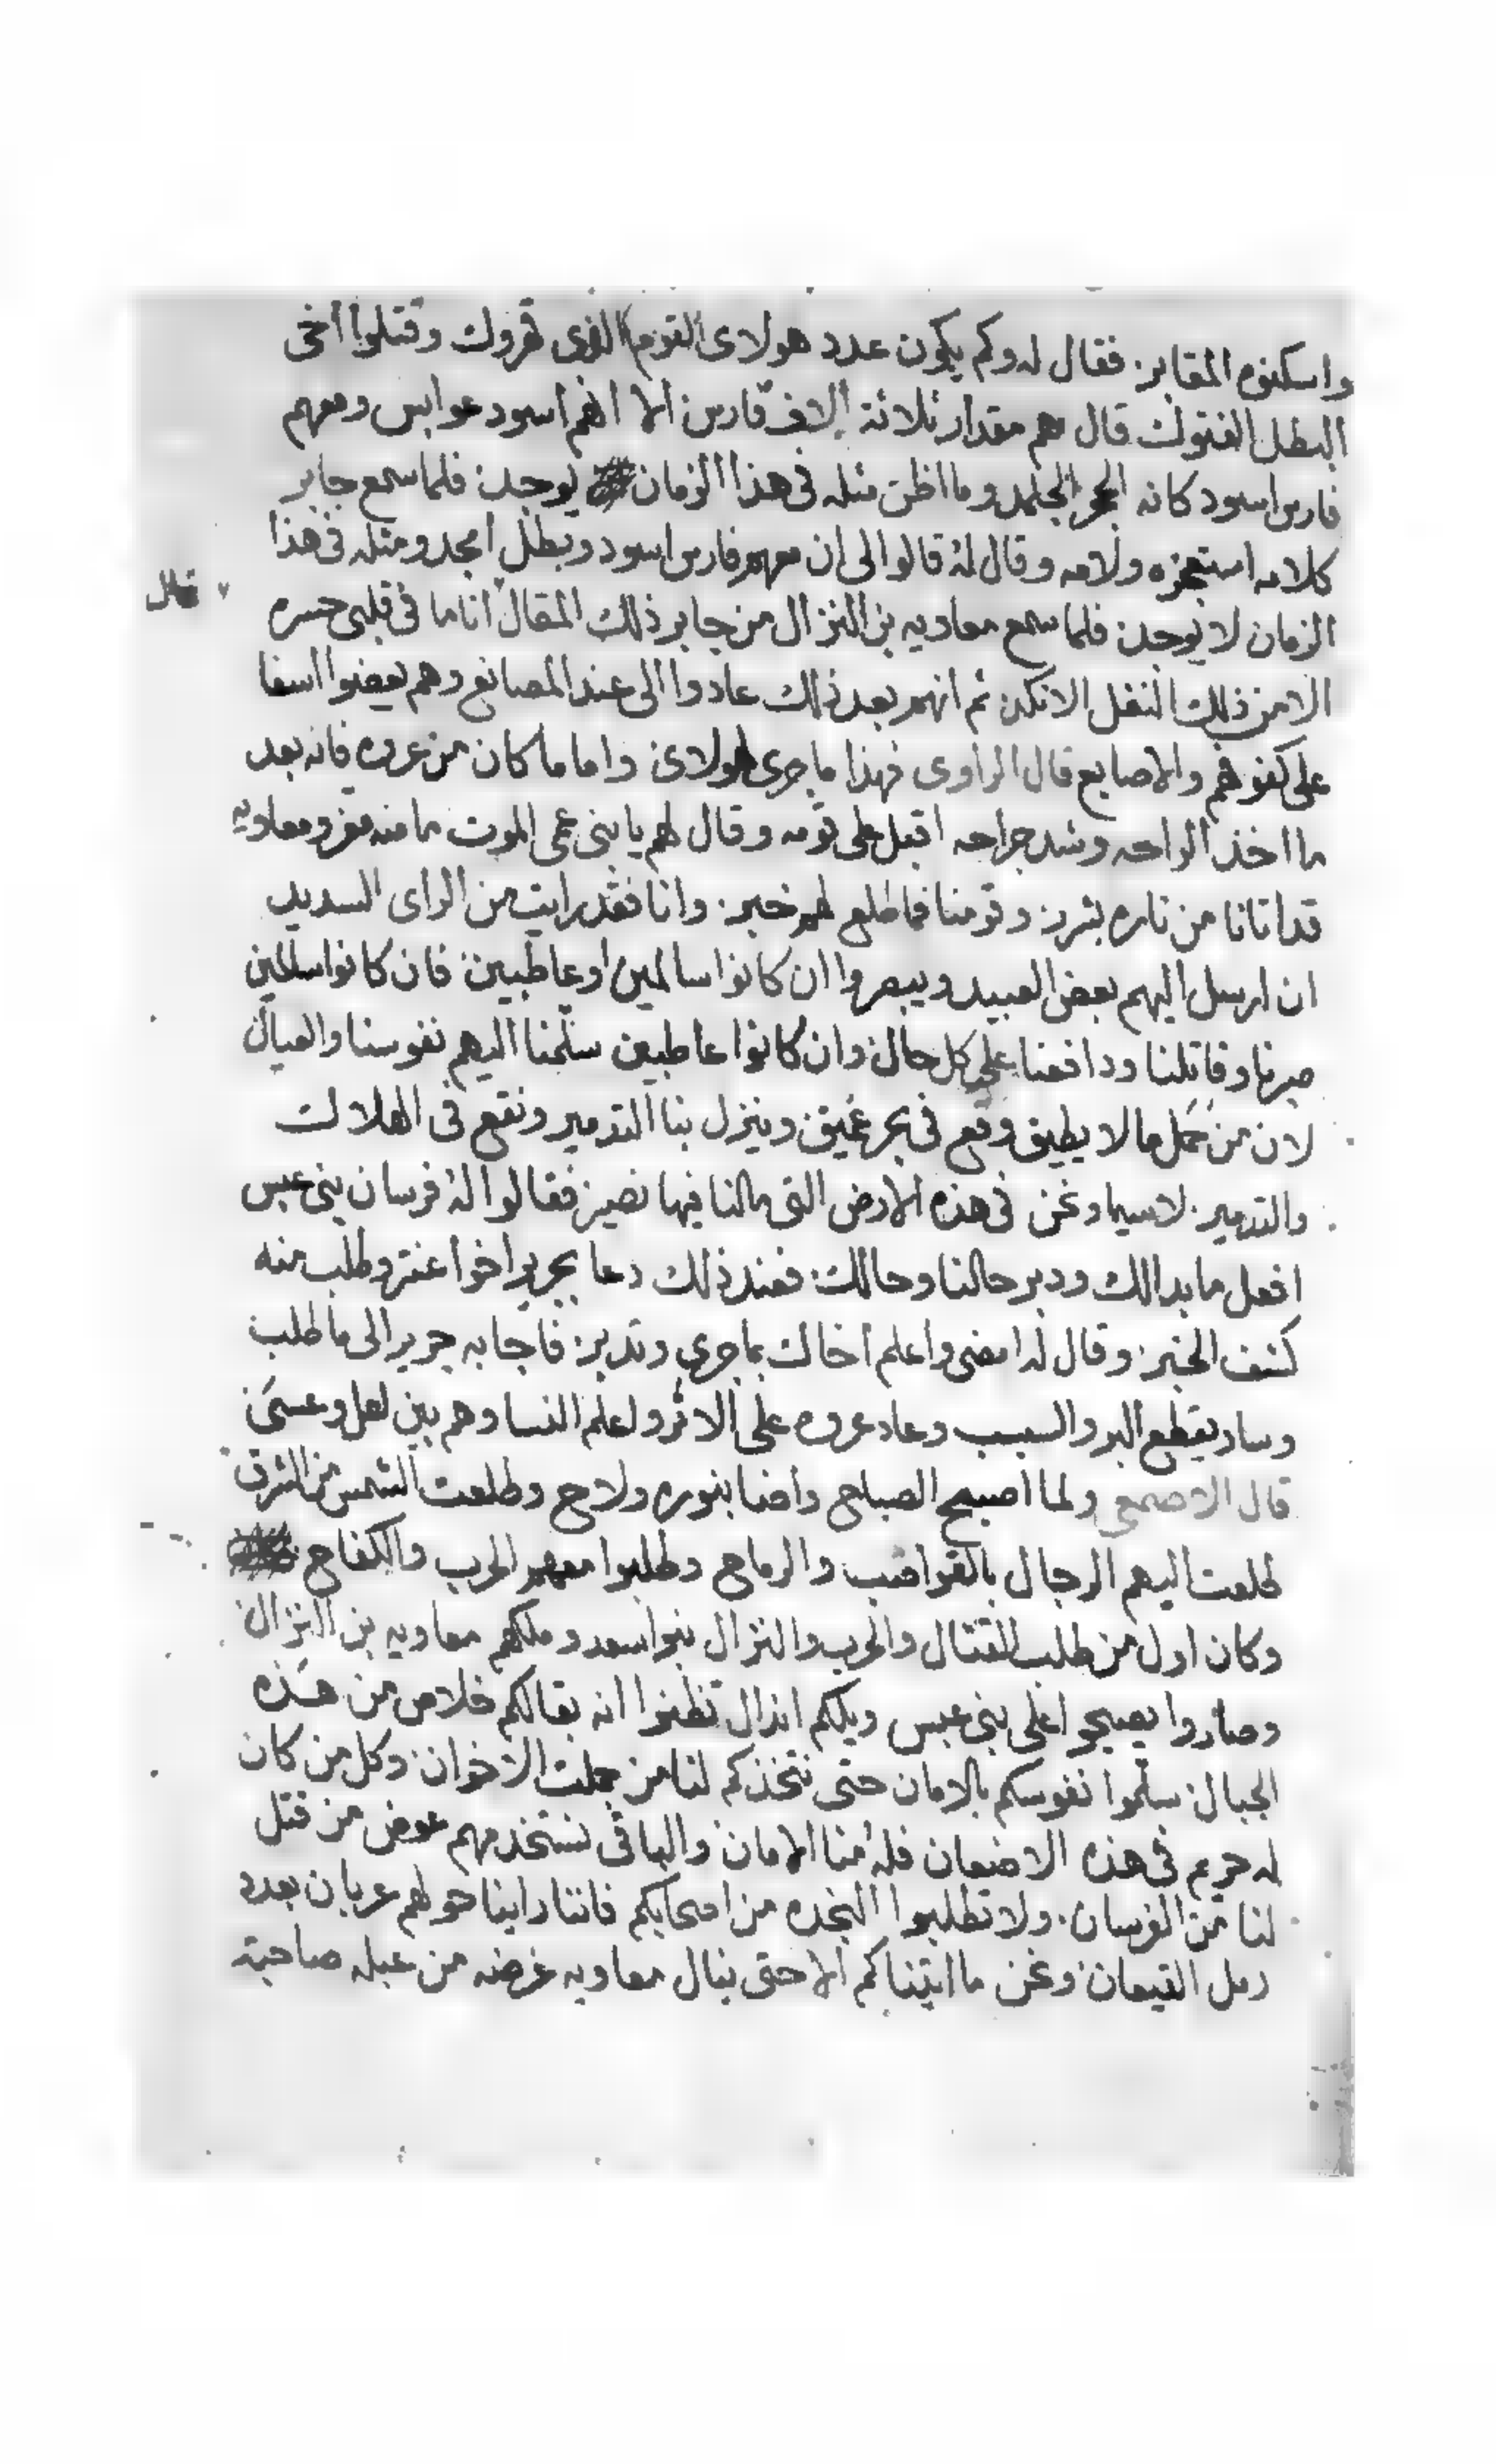 واسكنوه المقابر: فقال له وكم يكون عدد هولاى القوم الذى قهروك وقتلوا أخى
البطل الفتوك قال هم مقدار ثلاثة ألاف فارس الا انهم اسود عوابس ومعهم
فارس اسود كانه الحجر الجلمد وما اظن مثله فى هذا الزمان يوجد: فلما سمع جابر
كلامه استعجزه ولامه وقال له قالوا لى ان معهم فارس اسود وبطل امجد ومثله فى هذا
الزمان لا يوجد: فلما سمع معاويه بن النزال من جابر ذلك المقال انا ما فى قلبى حسره
قال
الا من ذلك النغل الانكد: ثم انهم بعد ذلك عادوا الى عند المصانع وهم يعضوا اسفا
على كفوفهم والاصابع قال الراوى فهذا ما جرى لهولاى: واما ما كان من عروه فانه بعد
ما اخذ الراحه وشد جراحه اقبل على قومه وقال لهم يا بنى عمى الموت ما منه مفر ومعاويه
قد اتانا من ناره بشرر: وقومنا فما طلع لهم خبر: وانا فقد رايت من الراى السديد
ان ارسل اليهم بعض العبيد ويبصروا ان كانوا سالمين اوعاطبين: فان كانوا سالمين
صبرنا وقاتلنا ودافعنا على كل حال: وان كانوا عاطبين سلمنا اليهم نفوسنا والعيال
لان من حمل ما لا يطيق وقع فى بحر غميق وينزل بنا التدمير ونقع فى الهلاك
والتدمير: لاسيما ونحن فى هذه الارض التى مالنا فيها نصير: فقالوا له فرسان بنى عبس
افعل ما بدالك ودبر حالنا وحالك: فعند ذلك دعا بجرير اخوا عنتر وطلب منه
كشف الخبر: وقال له امضى واعلم أخاك بما جرى وتدبر: فاجابه جرير الى ما طلب
وسار يقطع البر والسبسب وعاد عروه على الاثر واعلم النسا وهم بين لعل وعسى
قال الاصمعى ولما اصبح الصباح وأضا بنوره ولاح وطلعت الشمس من الشرق
طلعت اليهم الرجال بالقواضب والرماح وطلبوا معهم الحرب والكفاح
وكان اول من طلب القتال والحرب والنزال بنوا سعد وملكهم معاويه بن النزال
وصاروا يصيحوا على بنى عبس ويلكم انذال تظنوا انه بقالكم خلاص من هذه
الجبال: سلموا نفوسكم بالامان حتى نتخذكم لنا من جملت الاخوان: وكل من كان
له حريم فى هذه الاضعان فله منا الامان: والباقى نستخدمهم عوض من قتل
لنا من الفرسان: ولا تطلبوا النجده من اصحابكم فاننا راينا حولهم عربان بعدد
رمل القيعان: ونحن ما اتيناكم الا حتى ينال معاويه غرضه من عبله صاحبة